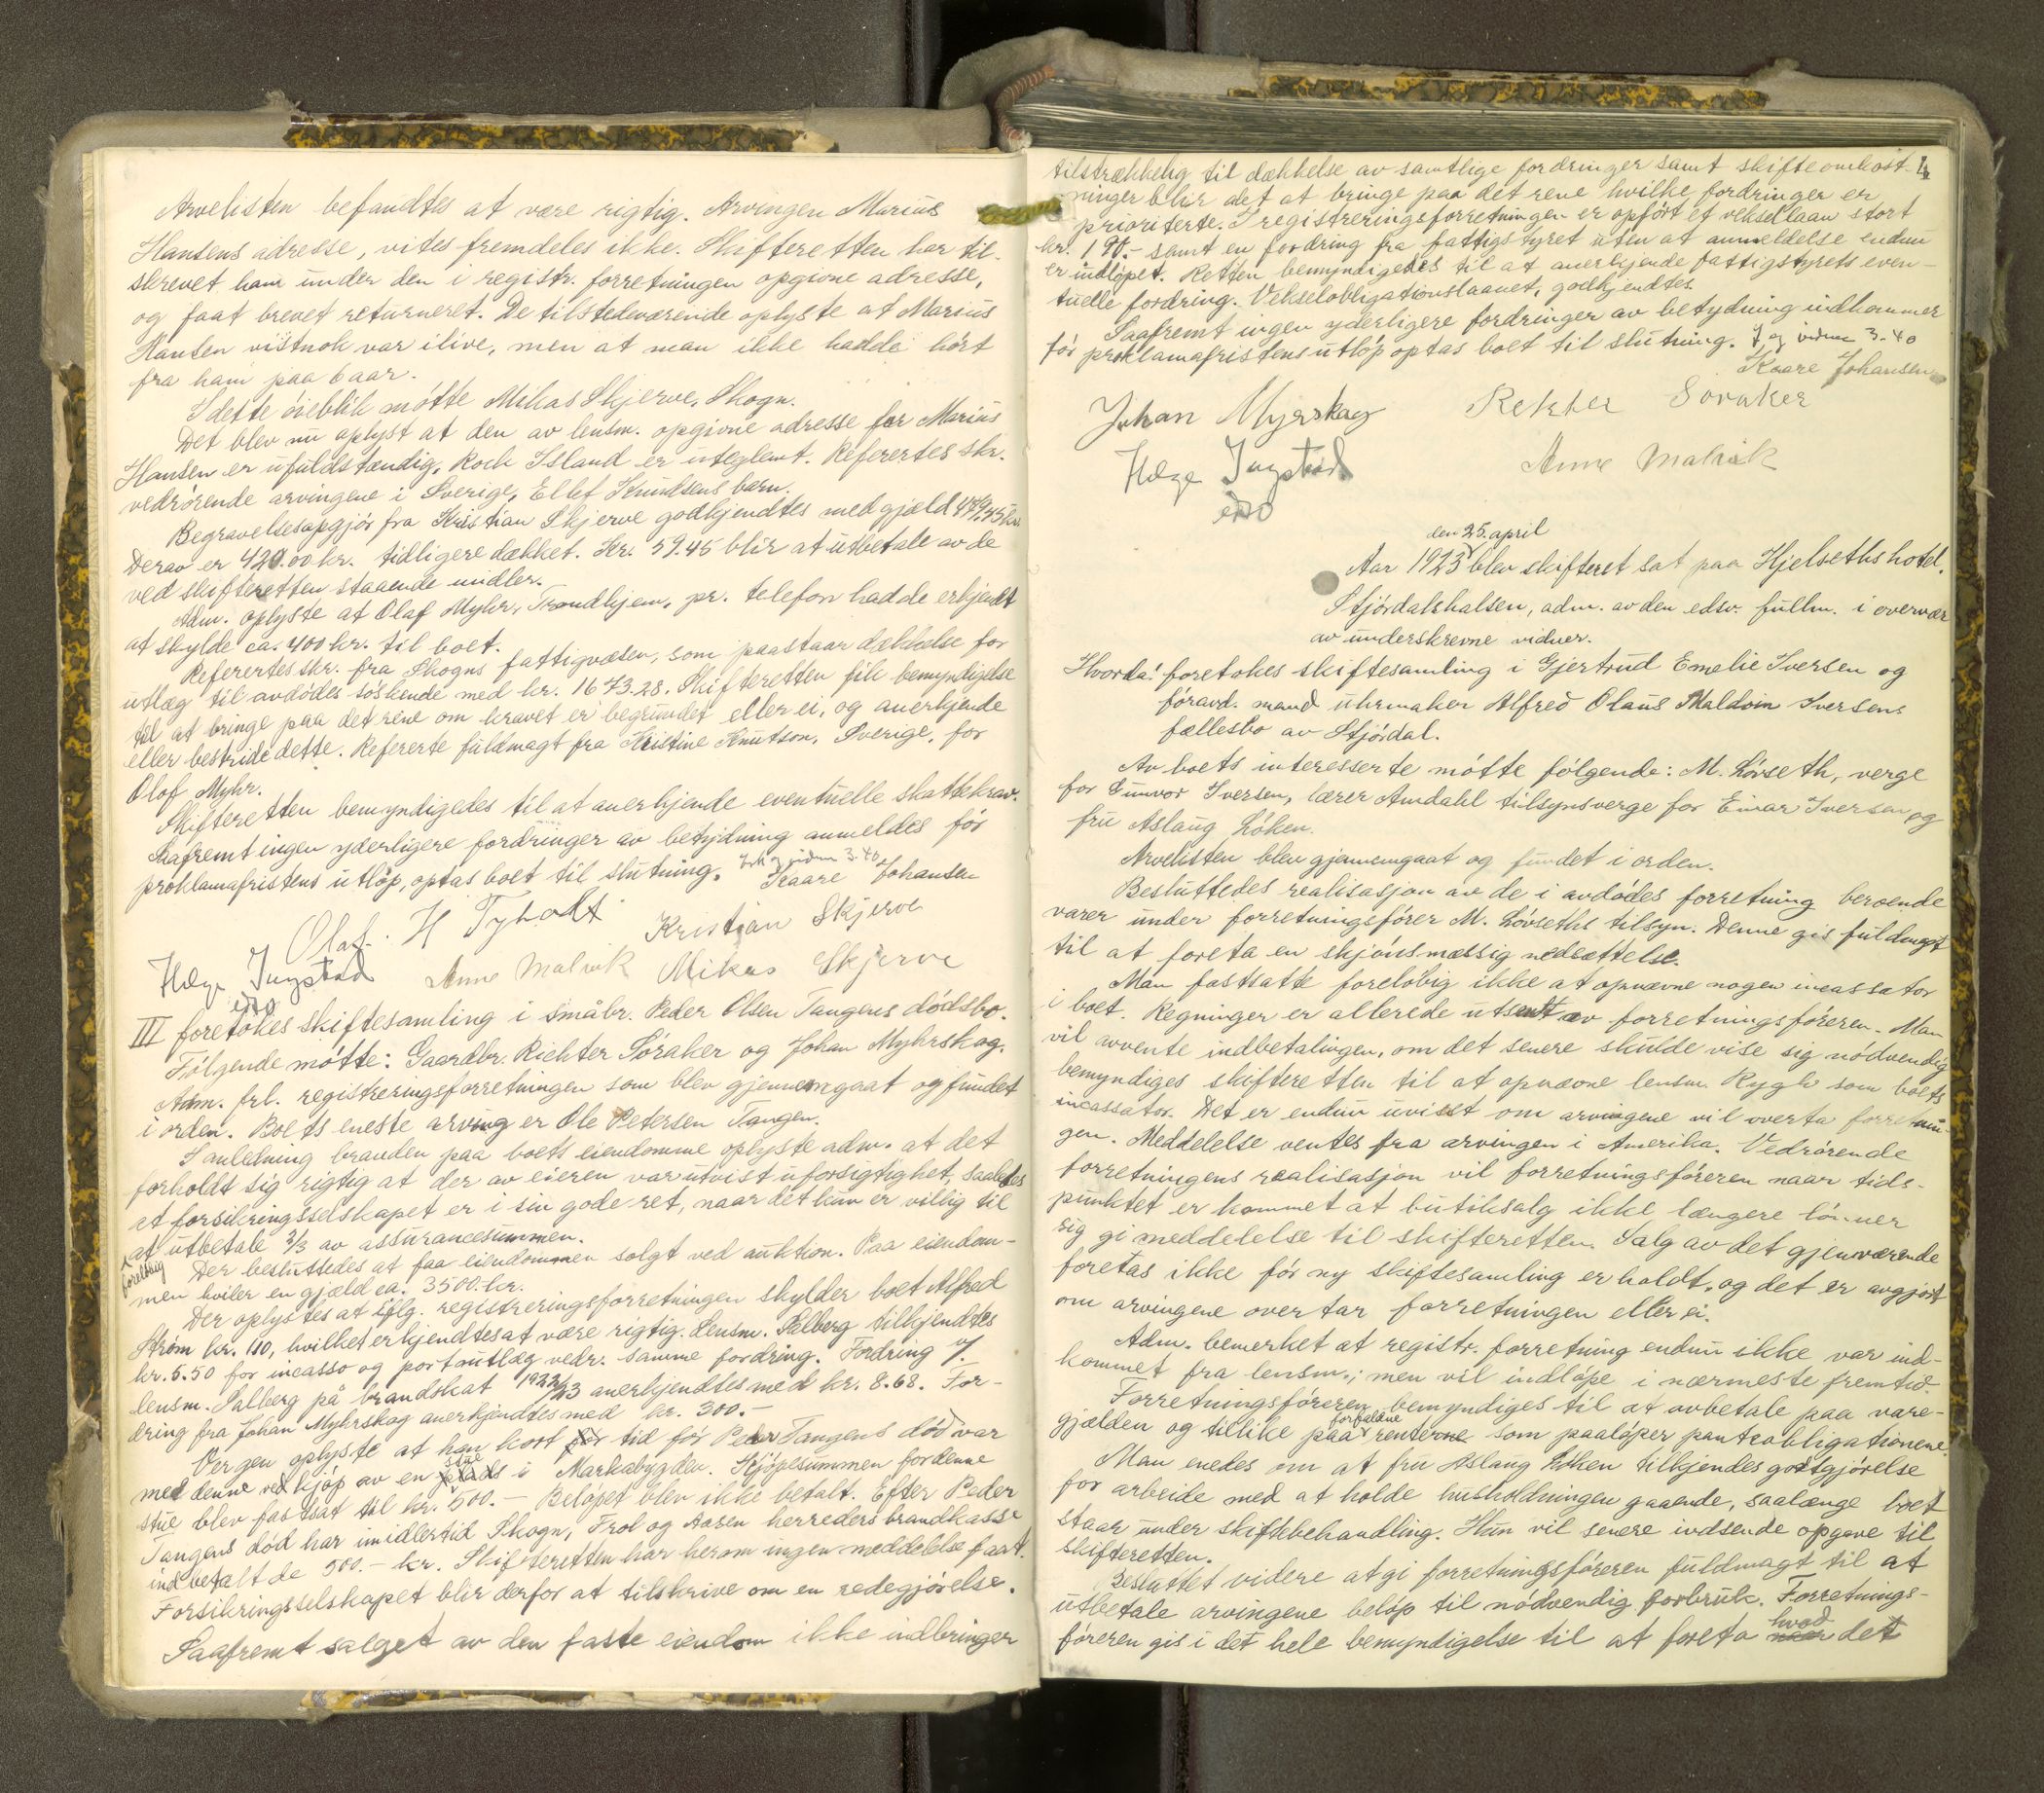 Arvelisten befandtes at være rigtig. Arvingen Marius
Hansens adresse, vites fremdeles ikke. Skifteretten har til-
skrevet ham under den i registr. forretningen opgivne adresse,
og faat brevet returneret. De tilstedeværende oplyste at Marius
Hansen vistnok var ilive, men at man ikke hadde hört
fra ham paa 6 aar.
I dette öieblik mötte Mikas Skjerve, Skogn.
Det blev nu oplyst at den av lensm. opgivne adresse for Marius
Hansen er ufuldstændig, Rock Island er uteglemt. Refertes skr.
vedrörende arvingene i Sverige, Ellef Knudsens barn.
Begravelsesopgjör fra Kristian Skjerve godkjendtes med gjæld 479,45 kr.
Derav er 420.00 kr. tidligere dækket. Kr. 59.45 blir at utbetale av de
ved skifteretten staaende midler.
Adm. oplyste at Olaf Myhr, Trondhjem, pr. telefon hadde erkjendt
at skylde ca. 400 kr. til boet.
Refertes skr. fra Skogns fattigvæsen, som paastaar dækkelse for
utlæg til avdödes söskende med kr. 1673.28. Skifteretten fik bemyndigelse
til at bringe paa det rene om kravet er begrundet eller ei, og anerkjende
eller bestride dette. Refererte fuldmagt fra Kristine Knutson, Sverige, for
Olof Myhr.
Skifteretten bemyndigedes til at anerkjende eventuelle skattekrav.
Saafremt ingen yderligere fordringer av betydning anmeldes för
proklamafristens utlöp, optas boet til slutning. 3.40
Kaare Johansen
Olaf. H Tyholt Kristian Skjerve
Helge Ingstad Anne Malvik Mikas Skjerve
edsv
III foretokes skiftesamling i småbr. Peder Olsen Tangens dödsbo.
Fölgende mötte: Gaardbr. Richter Söraker og Johan Myhrskog.
Adm. frl. registreringsforretningen som blev gjennemgaat og fundet
i orden. Boets eneste arving er Ole Pedersen Tangen.
I anledning branden paa boets eiendomme oplyste adm. at det
forholdt sig rigtig at der av eieren var utvist uforsigtighet, saaledes
at forsikringsselskapet er i sin gode ret, naar det kun er villig til
at utbetale 2/3 av assurancesummen.
forelöbig
Der besluttedes at faa eiendommen solgt ved auktion. Paa eiendom-
men hviler en gjæld ca. 3500.- kr.
Der oplystes at iflg. registreringsforretningen skylder boet Alfred
Ström kr. 180, hvilket erkjendtes at være rigtig. Lensm. Salberg tilkjendtes
kr. 5.50 for incasso og portoutlæg vedr. samme fordring. Fordring f.
lensm. Salberg på brandskat 1922/23 anerkjendtes med kr. 8.68. For-
dring fra Johan Myhrskog anerkjendtes med kr. 300.-
Vergen oplyste at han kort för tid för Peder Tangens död var
med denne ved kjöp av en plads i Markabygden. Kjöpesummen for denne
stue
stue blev fastsat til kr. 500.- Belöpet blev ikke betalt. Efter Peder
Tangens död har imidlertid Skogn, Frol og Aasen herreders brandkasse
indbetalt de 500.- kr. Skifteretten har herom ingen meddelelse faat.
Forsikringsselskapet blir derfor at tilskrive om en redegjörelse.
Saafremt salget av den faste eiendom ikke indbringer
4
tilstrækkelig til dækkelse av samtlige fordringer samt skifteomkost-
ninger blir det at bringe paa det rene hvilke fordringer er
prioriterte. I registreringsforretningen er opfört et veksellaan stort
kr. 190.- samt en fordring fra fattigstyret uten at anmeldelse endnu
er indlöpet. Retten bemyndigedes til at anerkjende fattigstyrets even-
tuelle fordring. Vekselobligationslaanet, godkjendtes.
Saafremt ingen yderligere fordringer av betydning indkommer
för proklamafristens utlöp optas boet til slutning. 3.40
Kaare Johansen
Johan Myrskog Rekter Soraker
Helge Ingstad Anne Malvik
edsv
den 25. april
Aar 1923 blev skifteret sat paa Hjelseths hotel,
Stjördalshalsen, adm. av den edsv. fullm. i overvær
av underskrevne vidner.
Hvorda! foretokes skiftesamling i Gjertrud Emelie Iversen og
föravd. mand uhrmaker Alfred Olaus Maldvin Iversens
fællesbo av Stjördal.
Av boets interesserte mötte fölgende: M. Lövseth, verge
for Gunvor Iversen, lærer Amdahl tilsynsverge for Einar Iversen og
fru Aslaug Löken.
Arvelisten blev gjennemgaat og fundet i orden.
Besluttedes realisasjon av de i avdödes forretning beroende
varer under forretningsförer M. Lövseths tilsyn. Denne gis fuldmagt
til at foreta en skjönsmæssig nedsættelse.
Man fastsatte forelöbig ikke at opnævne nogen incassator
i boet. Regninger er allerede utsendt av forretningsföreren. Man
vil avvente indbetalingen, om det senere skulde vise sig nödvendig
bemyndiges skifteretten til at opnævne lensm. Rygh som boets
incassator. Det er endnu uvisst om arvingene vil overta forretnin-
gen. Meddelelse ventes fra arvingen i Amerika. Vedrörende
forretningens realisasjon vil forretningsföreren naar tids-
punktet er kommet at butiksalg ikke længere lönner
sig gi meddelelse til skifteretten. Salg av det gjenværende
foretas ikke för ny skiftesamling er holdt, og det er avgjort
om arvingene overtar forretningen eller ei.
Adm. bemerket at registr. forretning endnu ikke var ind-
kommet fra lensm.; men vil indlöpe i nærmeste fremtid.
Forretningsföreren bemyndiges til at avbetale paa vare-
gjælden og tillike paa renterne som paalöper panteobligationene.
forfaldne
Man enedes om at fru Aslaug Löken tilkjendes godtgjörelse
for arbeide med at holde husholdningen gaaende, saalænge boet
staar under skiftebehandling. Hun vil senere indsende opgave til
skifteretten.
Besluttet videre at gi forretningsföreren fuldmagt til at
utbetale arvingene belöp til nödvendig forbruk. Forretnings-
föreren gis i det hele bemyndigelse til at foreta hvad det